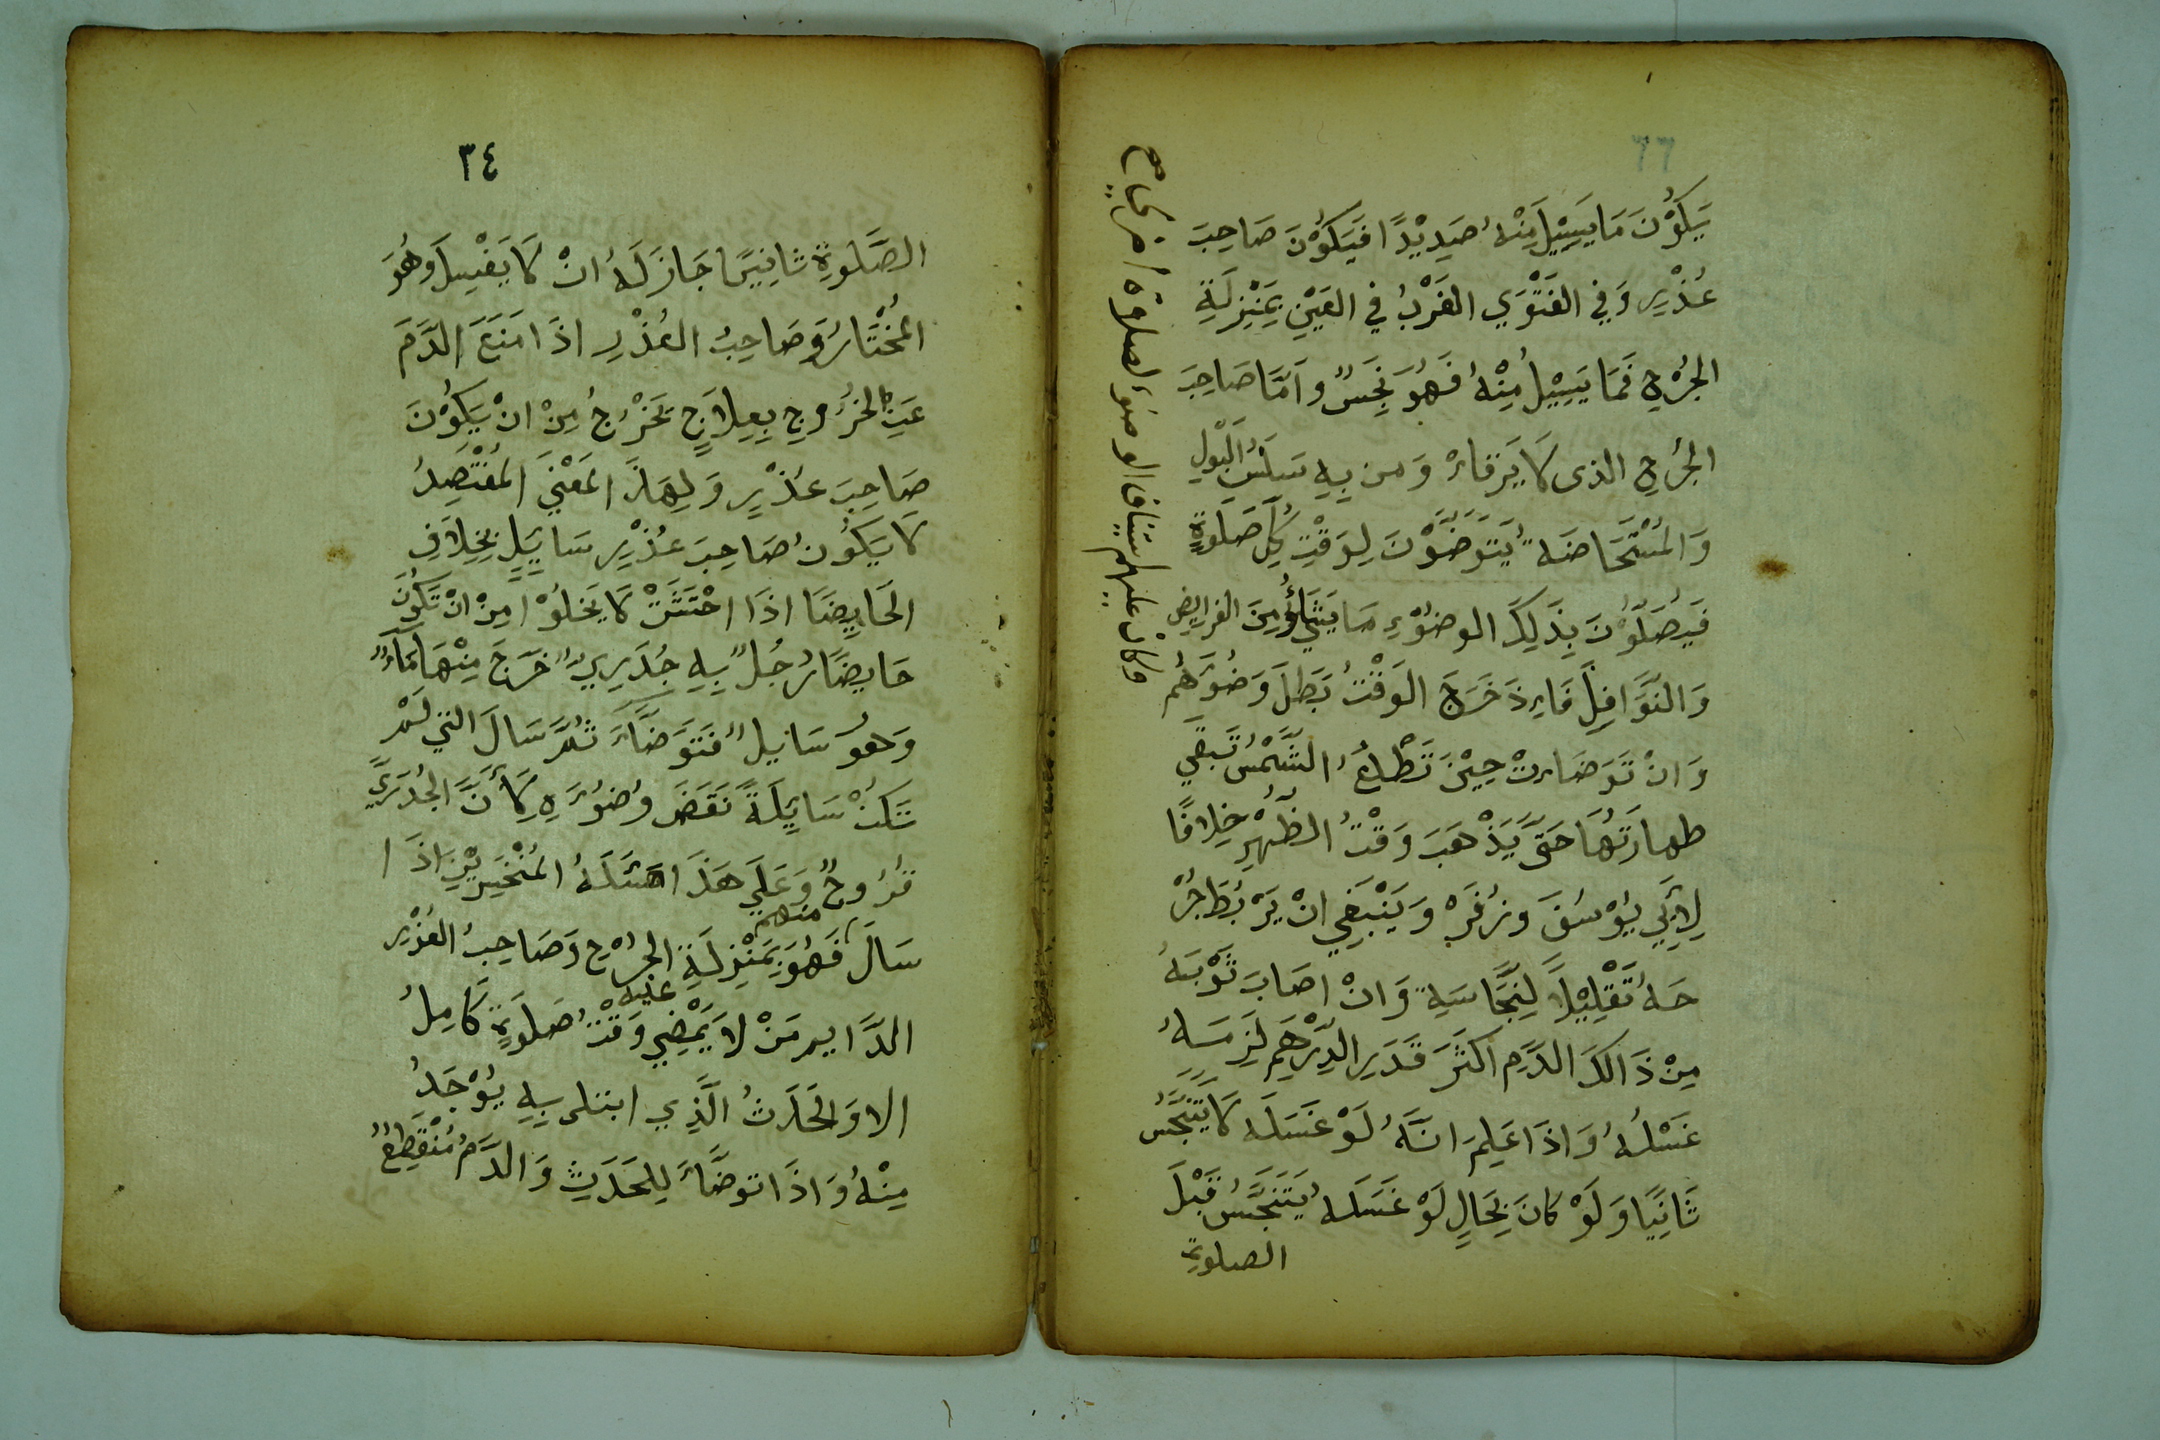 ٦٦
يَكُوْنَ مَا يَسِيْلَ مِنْهُ صَدِيْدًا فَيَكُوْنَ صَاحِبَ
عُذْرٍ وَفِي الفَتْوَي الغَرْبُ فِي العَيْنِ بِمَنْزِلَةِ
الجُرْحِ فَمَا يَسِيْلُ مِنْهُ فَهُوَ نَجَسٌ وَاَمَّا صَاحِبَ
الجُرْحِ الذى لَا يَرْقَاءْ وَمن بِهِ سَلَسُ البَوْلِ
وَالمُسْتَحَاضَه يَتَوَضَّوْنَ لِوَقْتِ كُلِّ صَلَوةٍ
فَيُصَلُّوْنَ بِذَلِكَ الوضُوْءِ مَا يَشَاؤُ مِنَ الفرايض
وَالنَّوَافِلَ فَاِذَ خَرَجَ الوَقْتُ بَطَلَ وَضُوَهُمُ
وَانْ تَوَضَاءتْ حِيْنَ تَطْلُعُ الشَّمْسُ تَبَقَي
طهارَتُهَا حَتَّى يَذْهَبَ وَقْتُ الظُّهْرِ خِلافًا
لِاَبِي يُوْسُفَ وزُفَرْ وَيَنْبَغِي انْ يَرْبُطَ جُرْ
حَهُ تَقْلِيْلًا لِنَجَّاسَةِ وَانْ اصَابَ ثَوْبَهُ
مِنْ ذَالكَ الدَّمِ اكثَرَ قَدَرِ الدِّرْهَمِ لَزِمَهُ
غَسْلُهُ وَاذَا عَلِمَ انَّهُ لَوْ غَسَلَه لَا يَتَنَجَّسُ
ثَانِيًا وَلَوْ كانَ بِحَالٍ لَوْ غَسَلَه يَتَنَجَّسُ قَبْلَ
الصلوة
وكان عليهم استيناف الوضوء لصلوة اخرى
٣٤
الصَّلوةِ ثانِيًا جَازَ لَهُ انْ لَا يَغْسِلَ وَهُوَ
المُخْتَارُ وَصَاحِبُ العُذْرِ اذَا مَنَعَ الدَّمَ
عَنِ الخُرُوجِ بِعِلَاجٍ يَخْرُجُ مِنْ انْ يَكُوْنَ
صَاحِبَ عُذْرٍ وَلِهَذَ المَعْنَي المُفْتَصِدُ
لَا يَكُونُ صَاحِبَ عُذْرٍ سَايِلٍ بِخِلَافِ
الحَايِضَا اذَا احْتَشَتْ لَا يَخلُوْ امِنْ انْ تَكُونَ
حَايضًا رُجُلٌ بِهِ جُدَرِيٌ خَرَجَ مِنْهَا مَآءٌ
وَهوَ سَائيلٌ فَتَوَضَّاءَ ثُمَّ سَالَ التي لَمْ
تَكُنْ سَايِلَةً نَقَضَ وُضوُءَهِ لِاَنَّ الجُدَرِيَّ
قُرُوحٌ وَعَلَي هَذَا مَسْئَلَهُ المُنْخَرَيْنِ اذَا
سَالَ منهم فَهُوَ بِمَنْزِلَةِ الجُرْحِ وَصَاحِبُ العُذْرِ
الدَّايم مَنْ لاَ يَمْضِي عليه وَقْتُ صَلوَةٍ كَامِلُ
الا وَالحَدَثُ الَّذِي ابتلى بِهِ يُوْجَدُ
مِنْهُ وَاذَا توضَّاءَ لِلحَدَثِ وَالدَّمُ مُنْقَطِعٌ